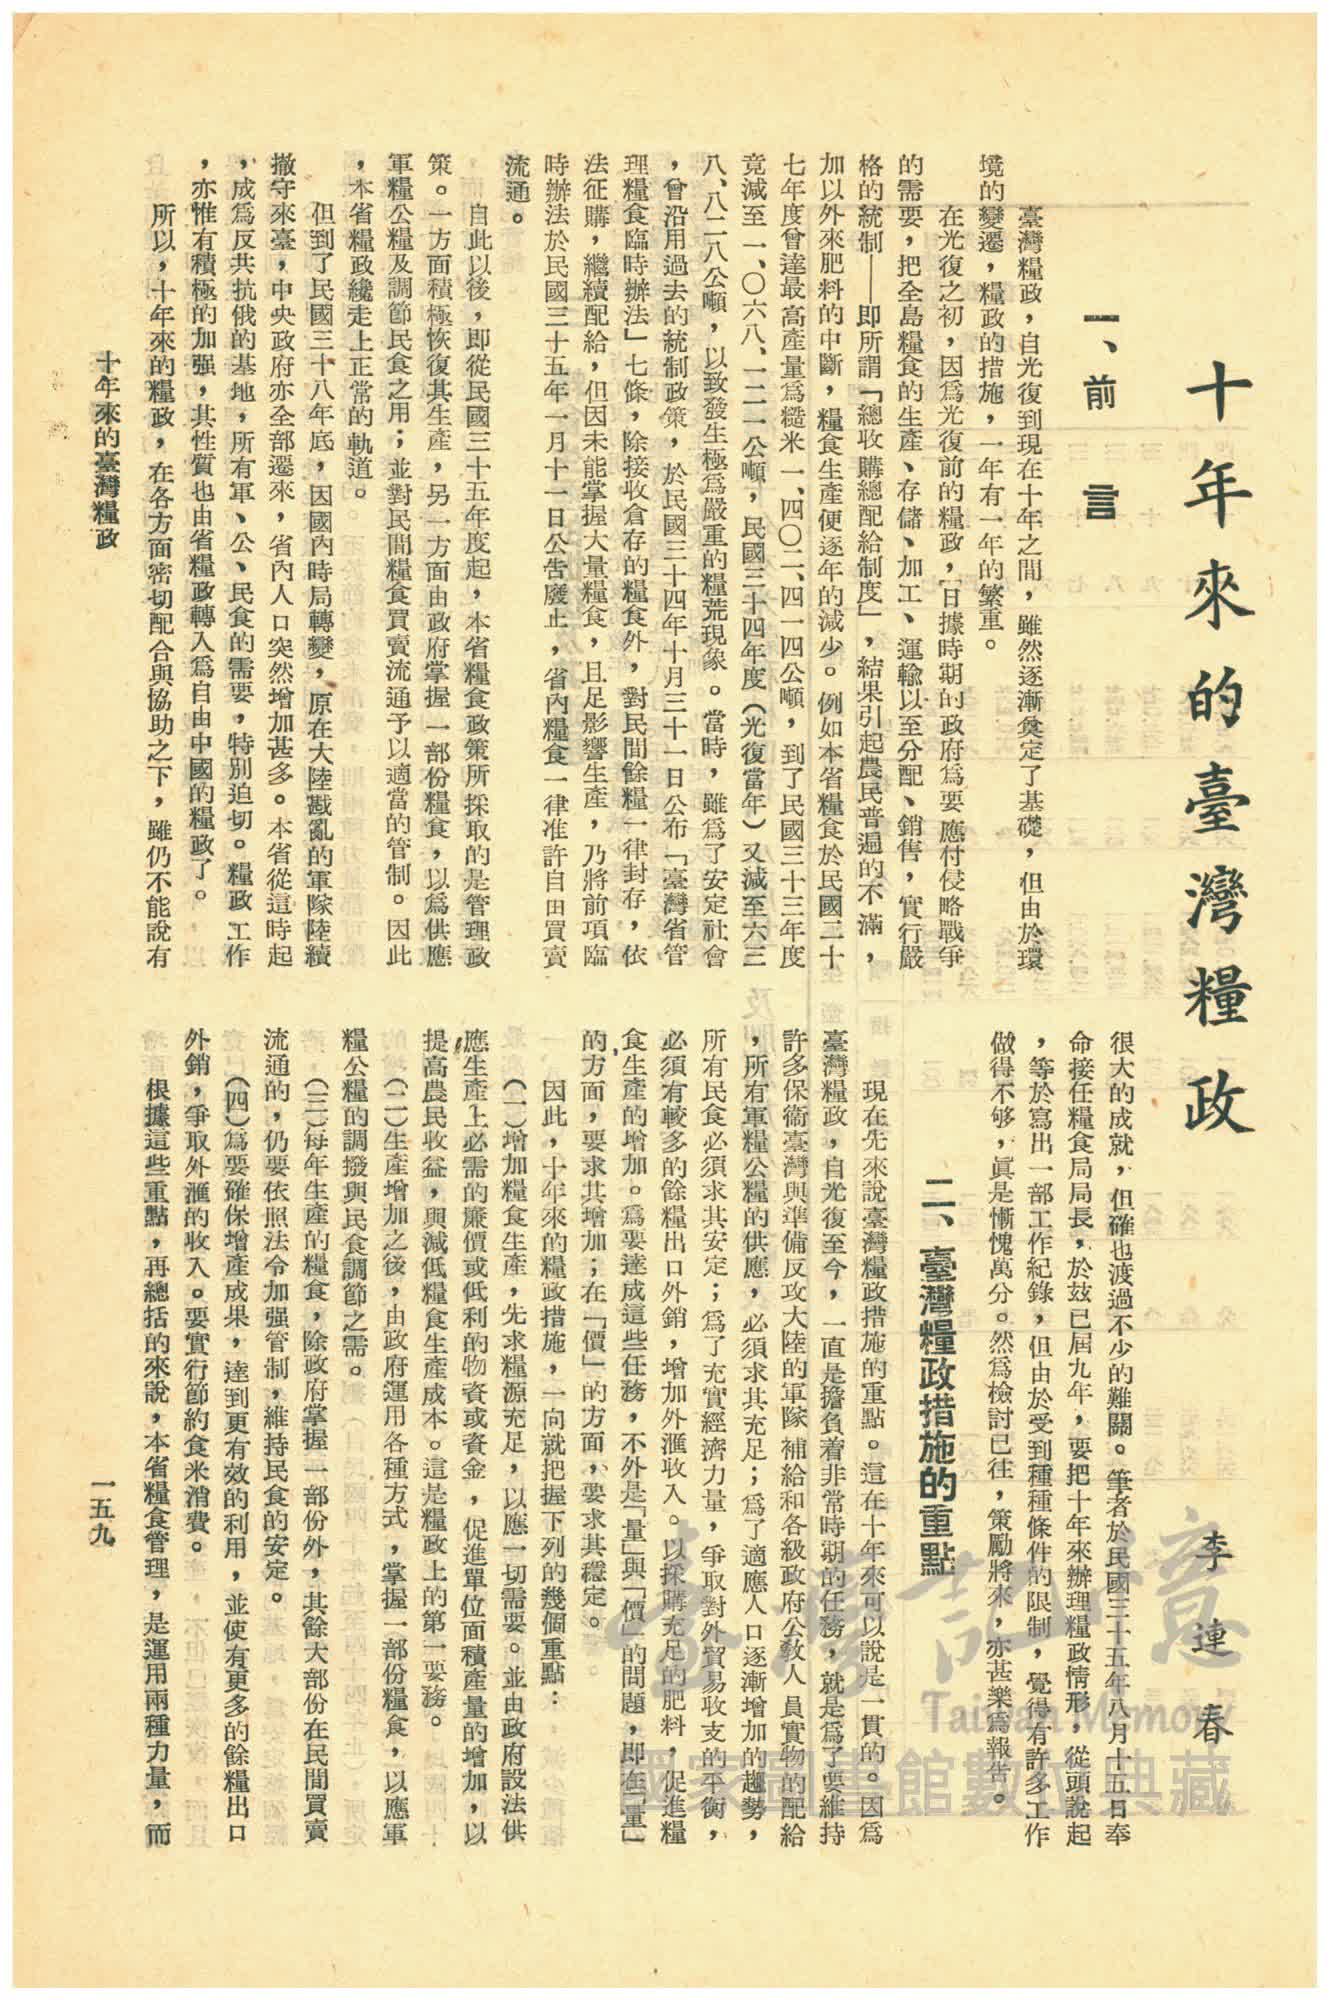 十年來的臺灣糧政
李連春
一、前言
臺灣糧政，自光復到現在十年之間，雖然逐漸奠定了基礎，但由於環
境的變遷，糧政的措施，一年有一年的繁重。
在光復之初，因爲光復前的糧政，日據時期的政府爲要應付侵略戰爭
的需要，把全島糧食的生產、存儲、加工、運輸以至分配、銷售，實行嚴
格的統制——即所謂「總收購總配給制度」，結果引起農民普遍的不滿，
加以外來肥料的中斷，糧食生產便逐年的減少。例如本省糧食於民國二十
七年度曾達最高產量爲糙米一、四〇二、四一四公噸，到了民國三十三年度
竟減至一、〇六八、一二一公噸，民國三十四年度（光復當年）又減至六三
八、八二八公噸，以致發生極爲嚴重的糧荒現象。當時，雖爲了安定社會
，曾沿用過去的統制政策，於民國三十四年十月三十一日公布「臺灣省管
理糧食臨時辦法」七條，除接收倉存的糧食外，對民間餘糧一律封存，依
法征購，繼續配給，但因未能掌握大量糧食，且足影響生產，乃將前項臨
時辦法於民國三十五年一月十一日公告廢止，省內糧食一律准許自由買賣
流通。
自此以後，即從民國三十五年度起，本省糧食政策所採取的是管理政
策。一方面積極恢復其生產，另一方面由政府掌握一部份糧食，以爲供應
軍糧公糧及調節民食之用；並對民間糧食買賣流通予以適當的管制。因此
，本省糧政纔走上正常的軌道。
但到了民國三十八年底，因國內時局轉變，原在大陸戡亂的軍隊陸續
撤守來臺，中央政府亦全部遷來，省內人口突然增加甚多。本省從這時起
，成爲反共抗俄的基地，所有軍、公、民食的需要，特別迫切。糧政工作
，亦惟有積極的加強，其性質也由省糧政轉入爲自由中國的糧政了。
所以，十年來的糧政，在各方面密切配合與協助之下，雖仍不能說有
很大的成就，但確也渡過不少的難關。筆者於民國三十五年八月十五日奉
命接任糧食局局長，於茲已屆九年，要把十年來辦理糧政情形，從頭說起
，等於寫出一部工作紀錄，但由於受到種種條件的限制，覺得有許多工作
做得不够，眞是慚愧萬分。然爲檢討已往，策勵將來，亦甚樂爲報告。
二、臺灣糧政措施的重點
現在先來說臺灣糧政措施的重點。這在十年來可以說是一貫的。因爲
臺灣糧政，自光復至今，一直是擔負着非常時期的任務，就是爲了要維持
許多保衞臺灣與準備反攻大陸的軍隊補給和各級政府公教人員實物的配給
，所有軍糧公糧的供應，必須求其充足；爲了適應人口逐漸增加的趨勢，
所有民食必須求其安定；爲了充實經濟力量，爭取對外貿易收支的平衡，
必須有較多的餘糧出口外銷，增加外滙收入。以採購充足的肥料，促進糧
食生產的增加。爲要達成這些任務，不外是「量」與「價」的問題，即在「量」
的方面，要求其增加；在「價」的方面，要求其穩定。
因此，十年來的糧政措施，一向就把握下列的幾個重點：
（一）增加糧食生產，先求糧源充足，以應一切需要。並由政府設法供
應生產上必需的廉價或低利的物資或資金，促進單位面積產量的增加，以
提高農民收益，與減低糧食生產成本。這是糧政上的第一要務。
（二）生產增加之後，由政府運用各種方式，掌握一部份糧食，以應軍
糧公糧的調撥與民食調節之需。
（三）每年生產的糧食，除政府掌握一部份外，其餘大部份在民間買賣
流通的，仍要依照法令加強管制，維持民食的安定。
（四）爲要確保增產成果，達到更有效的利用，並使有更多的餘糧出口
外銷，爭取外滙的收入。要實行節約食米消費。
根據這些重點，再總括的來說，本省糧食管理，是運用兩種力量，而
十年來的臺灣糧政
一五九
臺灣記憶
Taiwan Memory
國家圖書館數位典藏